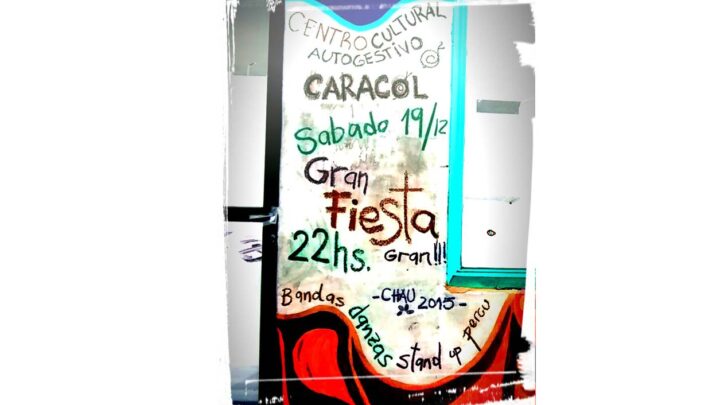 CENTRO CULTURAL
AUTOGESTIVO
CARACOL
Sabado 19/12
Gran
Fiesta
22hs. Gran!!!
-CHAU 2015-
Bandas danzas stand up percu